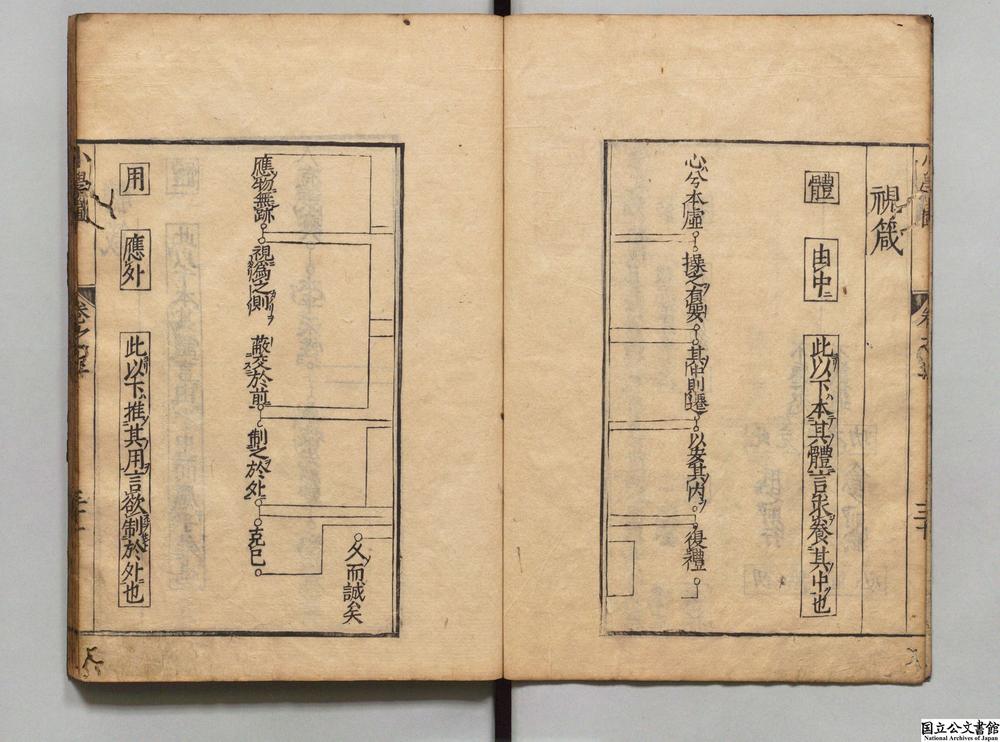 視箴
體
由中
此以下本其體言求養其中也
心兮本虛
操之有要
其中則遷
以安其内
復禮
久而誠矣
應物無跡
視爲之則
蔽交於前
制之於外
克已
用
應外
此以下推其用言欲制於外也
小學圖
国立公文書館
National Archives of Japan